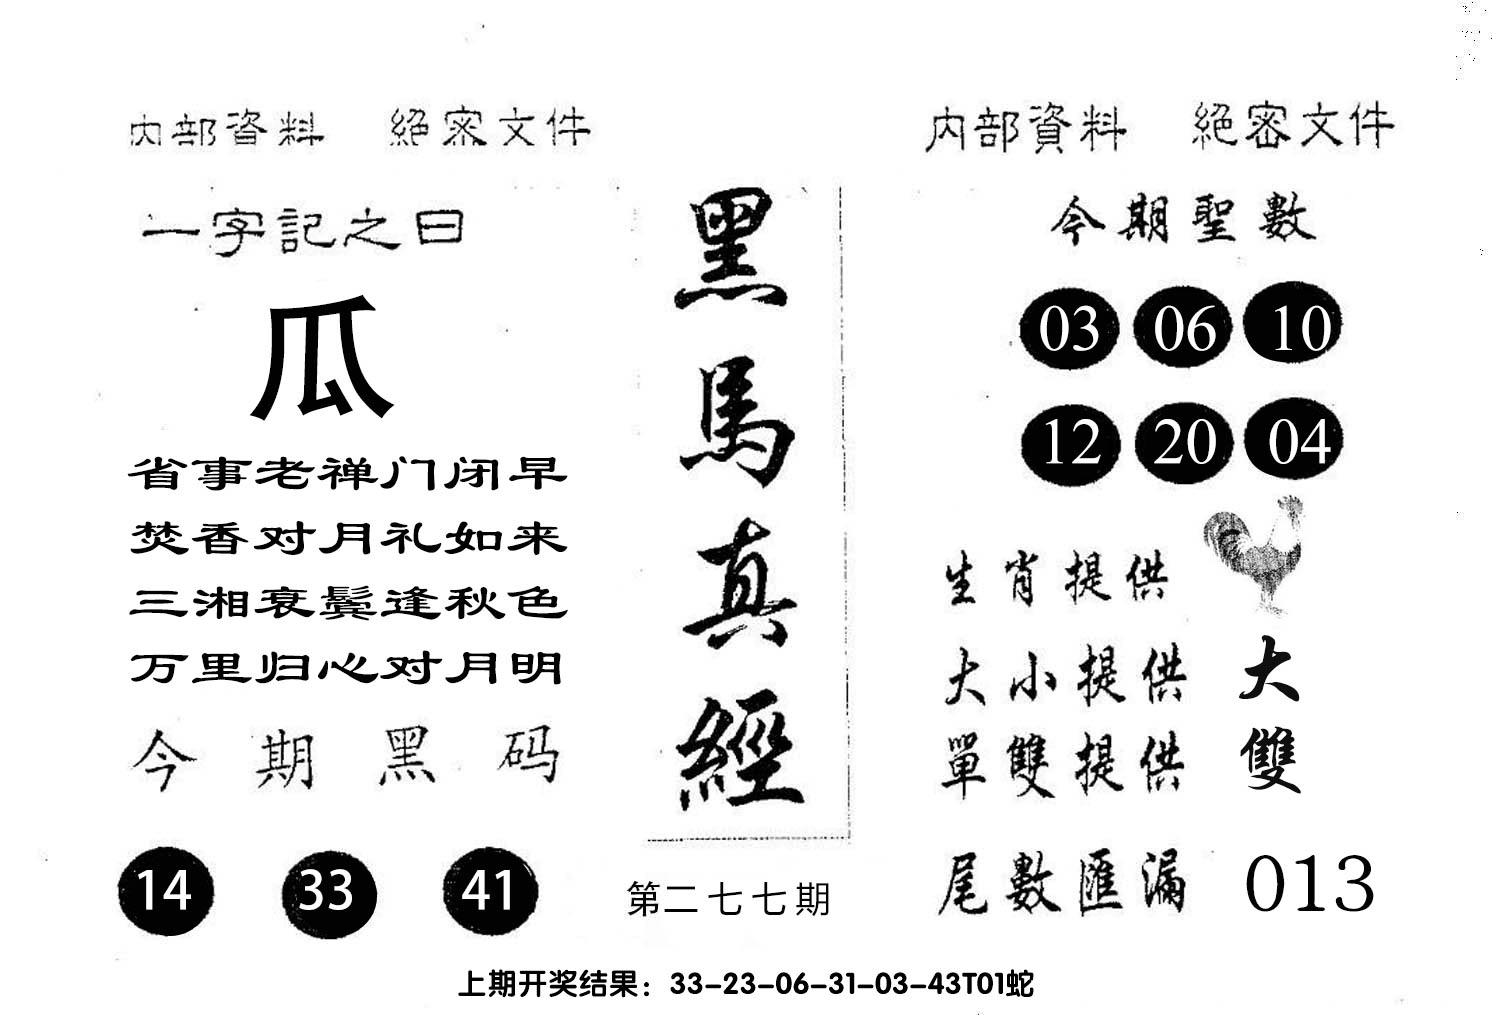 内部資料 絕密文件
一字記之曰
瓜
省事老禅门闭早
焚香对月礼如来
三湘衰鬓逢秋色
万里归心对月明
今期黑码
14 33 41
黑馬真經
第二七七期
内部資料 絕密文件
今期聖數
03 06 10
12 20 04
生肖提供
大小提供 大
單雙提供 雙
尾數匯漏 013
上期开奖结果：33-23-06-31-03-43T01蛇